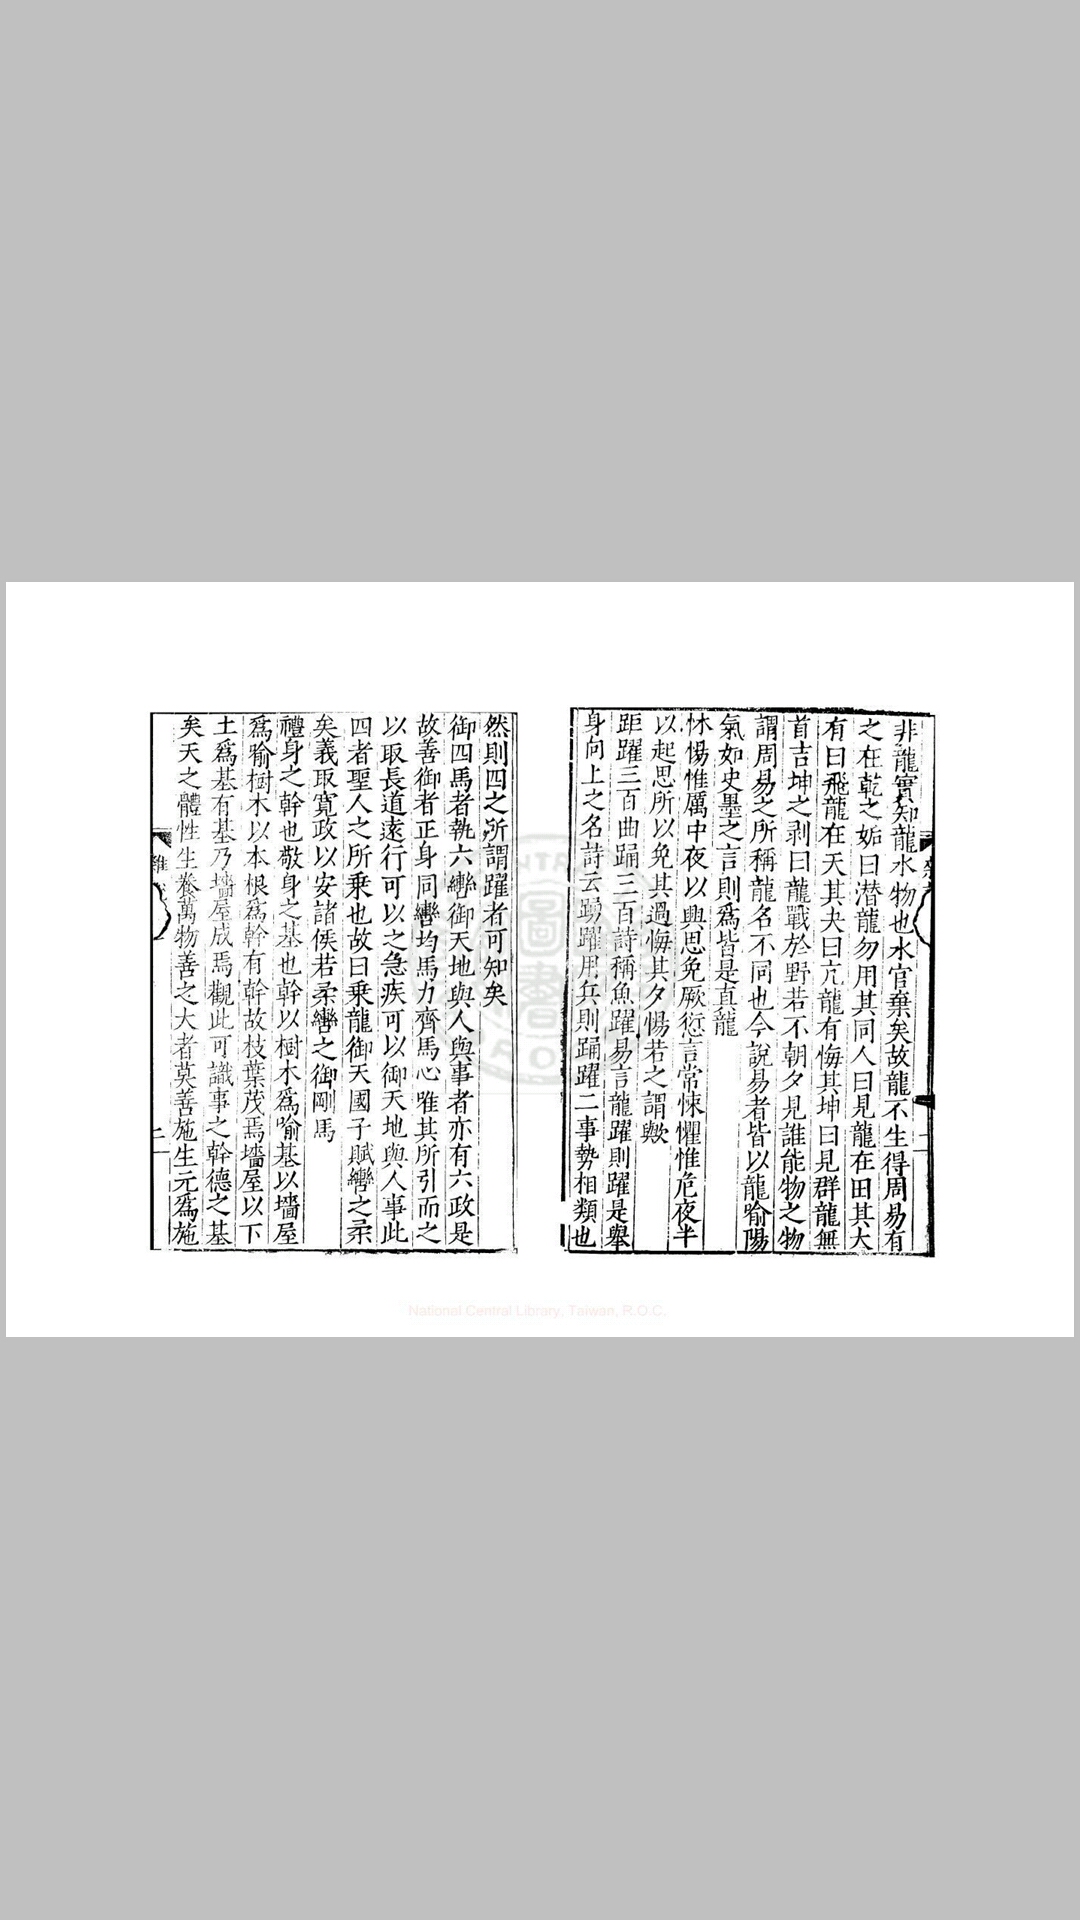 非龍實知龍水物也水官棄矣故龍不生得周易有
之在乾之姤曰潛龍勿用其同人曰見龍在田其大
有曰飛龍在天其夬曰亢龍有悔其坤曰見群龍無
首吉坤之剥曰龍戰於野若不朝夕見誰能物之物
謂周易之所稱龍名不同也今說易者皆以龍喻陽
氣如史墨之言則爲皆是直龍
怵惕惟厲中夜以興思免厥愆言常悚懼惟危夜半
以起思所以免其過悔其夕惕若之謂歟
距躍三百曲踊三百詩稱魚躍易言龍躍則躍是舉
身向上之名詩云踊躍用兵則踊躍二事勢相類也
然則四之所謂躍者可知矣
御四馬者執六轡御天地與人與事者亦有六政是
故善御者正身同轡均馬力齊馬心唯其所引而之
以取長道遠行可以之急疾可以御天地與人事此
四者聖人之所乘也故曰乘龍御天國子賦轡之柔
矣義取寬政以安諸侯若柔轡之御剛馬
禮身之幹也敬身之基也幹以樹木爲喻基以墻屋
爲喻樹木以本根爲幹有幹故枝葉茂焉墻屋以下
土爲基有基乃墻屋成焉觀此可識事之幹德之基
矣天之體性生養萬物善之大者莫善施生元爲施
雜
二
National Central Library, Taiwan, R.O.C.
圖書